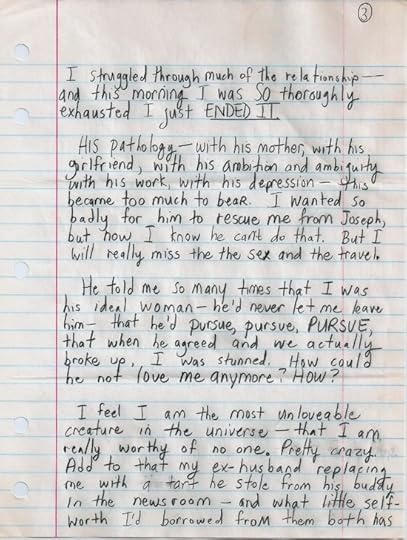 3
I struggled through much of the relationship—
and this morning I was SO thoroughly
exhausted I just ENDED IT.
His pathology—with his mother, with his
girlfriend, with his ambition and ambiguity
with his work, with his depression— this
became too much to bear. I wanted so
badly for him to rescue me from Joseph,
but now I know he can't do that. But I
will really miss the the sex and the travel.
He told me so many times that I was
his ideal woman—he'd never let me leave
him— that he'd pursue, pursue, PURSUE,
that when he agreed and we actually
broke up, I was stunned. How could
he not love me anymore? How?
I feel I am the most unloveable
creature in the universe—that I am
really worthy of no one. Pretty crazy.
Add to that my ex-husband replacing
me with a tart he stole from his buddy
in the newsroom—and what little self-
worth I'd borrowed from them both has